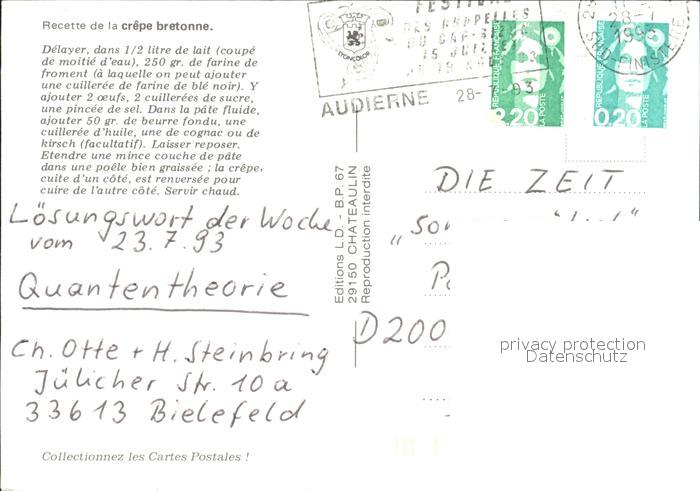 Recette de la crêpe bretonne.
Délayer, dans 1/2 litre de lait (coupé
de moitié d'eau), 250 gr. de farine de
froment (à laquelle on peut ajouter
une cuillerée de farine de blé noir). Y
ajouter 2 œufs, 2 cuillerées de sucre,
une pincée de sel. Dans la pâte fluide,
ajouter 50 gr. de beurre fondu, une
cuillerée d'huile, une de cognac ou de
kirsch (facultatif). Laisser reposer.
Etendre une mince couche de pâte
dans une poêle bien graissée ; la crêpe,
cuite d'un côté, est renversée pour
cuire de l'autre côté. Servir chaud.
Lösungswort der Woche
vom 23.7.93
Quantentheorie
Ch. Otte + H. Steinbring
Jülicher Str. 10a
33613 Bielefeld
Collectionnez les Cartes Postales !
Editions L.D. - B.P. 67
29150 CHATEAULIN
Reproduction interdite
FESTIVAL
DES CHAPELLES
DU CAP-SIZUN
15 JUILLET
AUDIERNE
28-
93
REPUBLIQUE FRANÇAISE
2,20
LA POSTE
REPUBLIQUE FRANÇAISE
0,20
LA POSTE
28-7
1993
DIE ZEIT
D200
privacy protection
Datenschutz